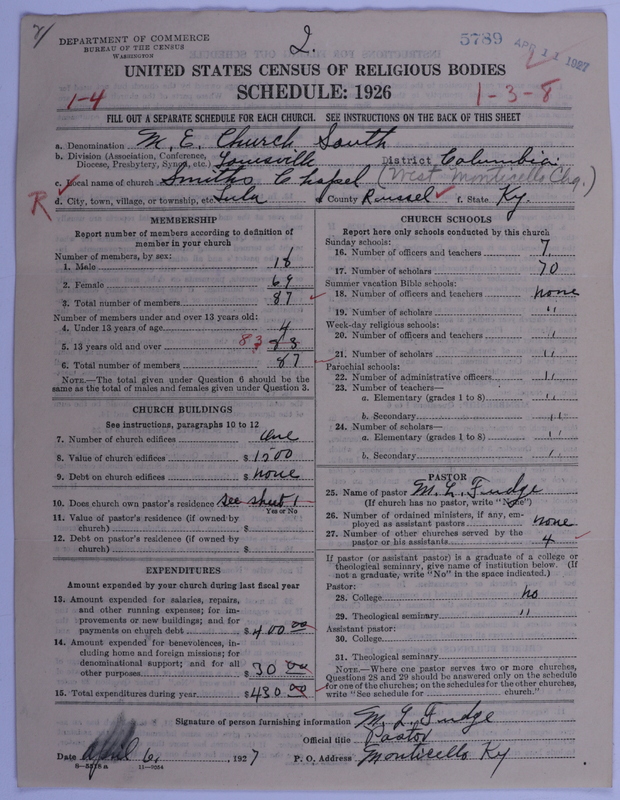 2.
DEPARTMENT OF COMMERCE
BUREAU OF THE CENSUS
WASHINGTON
5789 APR 11 1927
UNITED STATES CENSUS OF RELIGIOUS BODIES
SCHEDULE: 1926
1-4
1-3-8
FILL OUT A SEPARATE SCHEDULE FOR EACH CHURCH. SEE INSTRUCTIONS ON THE BACK OF THIS SHEET
a. Denomination M. E. Church South
b. Division (Association, Conference, Diocese, Presbytery, Synod, etc.) Louisville District Columbia
c. Local name of church Smiths Chapel (West Monticello Chg.)
R
d. City, town, village, or township, etc. Lula e. County Russel f. State Ky.
MEMBERSHIP
Report number of members according to definition of
member in your church
Number of members, by sex:
1. Male 18
2. Female 69
3. Total number of members 87
Number of members under and over 13 years old:
4. Under 13 years of age 4
5. 13 years old and over 83 83
6. Total number of members 87
NOTE.—The total given under Question 6 should be the
same as the total of males and females given under Question 3.
CHURCH BUILDINGS
See instructions, paragraphs 10 to 12
7. Number of church edifices one
8. Value of church edifices $ 1500
9. Debt on church edifices $ none
10. Does church own pastor's residence see sheet 1
Yes or No
11. Value of pastor's residence (if owned by
church) $
12. Debt on pastor's residence (if owned by
church) $
EXPENDITURES
Amount expended by your church during last fiscal year
13. Amount expended for salaries, repairs,
and other running expenses; for im-
provements or new buildings; and for
payments on church debt $ 400 00
14. Amount expended for benevolences, in-
cluding home and foreign missions; for
denominational support; and for all
other purposes $ 30 00
15. Total expenditures during year $ 430 00
CHURCH SCHOOLS
Report here only schools conducted by this church
Sunday schools:
16. Number of officers and teachers 7
17. Number of scholars 70
Summer vacation Bible schools:
18. Number of officers and teachers none
19. Number of scholars "
Week-day religious schools:
20. Number of officers and teachers "
21. Number of scholars "
Parochial schools:
22. Number of administrative officers "
23. Number of teachers—
a. Elementary (grades 1 to 8) "
b. Secondary "
24. Number of scholars—
a. Elementary (grades 1 to 8) "
b. Secondary "
PASTOR
25. Name of pastor M. L. Fudge
(If church has no pastor, write "None")
26. Number of ordained ministers, if any, em-
ployed as assistant pastors none
27. Number of other churches served by the
pastor or his assistants 4
If pastor (or assistant pastor) is a graduate of a college or
theological seminary, give name of institution below. (If
not a graduate, write "No" in the space indicated.)
Pastor:
28. College no
29. Theological seminary "
Assistant pastor:
30. College
31. Theological seminary
NOTE.—Where one pastor serves two or more churches,
Questions 28 and 29 should be answered only on the schedule
for one of the churches; on the schedules for the other churches,
write "See schedule for church."
Signature of person furnishing information M. L. Fudge
Official title Pastor
Date April 6, 1927 P. O. Address Monticello Ky
8-5578 a 11-9554